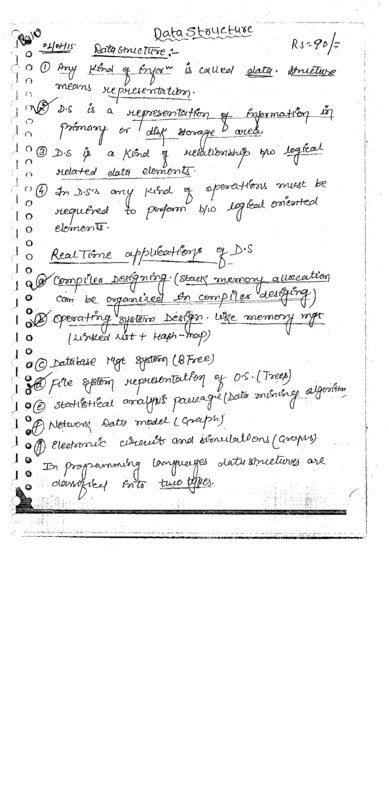 Data Structure
Rs=90/=
Data structure:-
① Any kind of Inforⁿ is called data. structure
means representation.
② D.S is a representation of Information in
primary or disk storage area.
③ D.S is a kind of relationship b/w logical
related data elements.
④ In D.S's any kind of operations must be
required to perform b/w logical oriented
elements.
Real Time applications of D.S
ⓐ Compiler Designing. (Stack memory allocation
can be organized in compiler desiging)
ⓑ Operating System Design. like memory mgt
(Linked List + Hash-map)
ⓒ Database Mgt System (B Trees)
ⓓ File System representation of O.S. (Trees)
ⓔ Statistical analysis package (Data minings algorithm)
ⓕ Network Data model (Graphs)
ⓖ Electronic circuit and simulations (Graphs)
In programming languages data structures are
classified into two types.